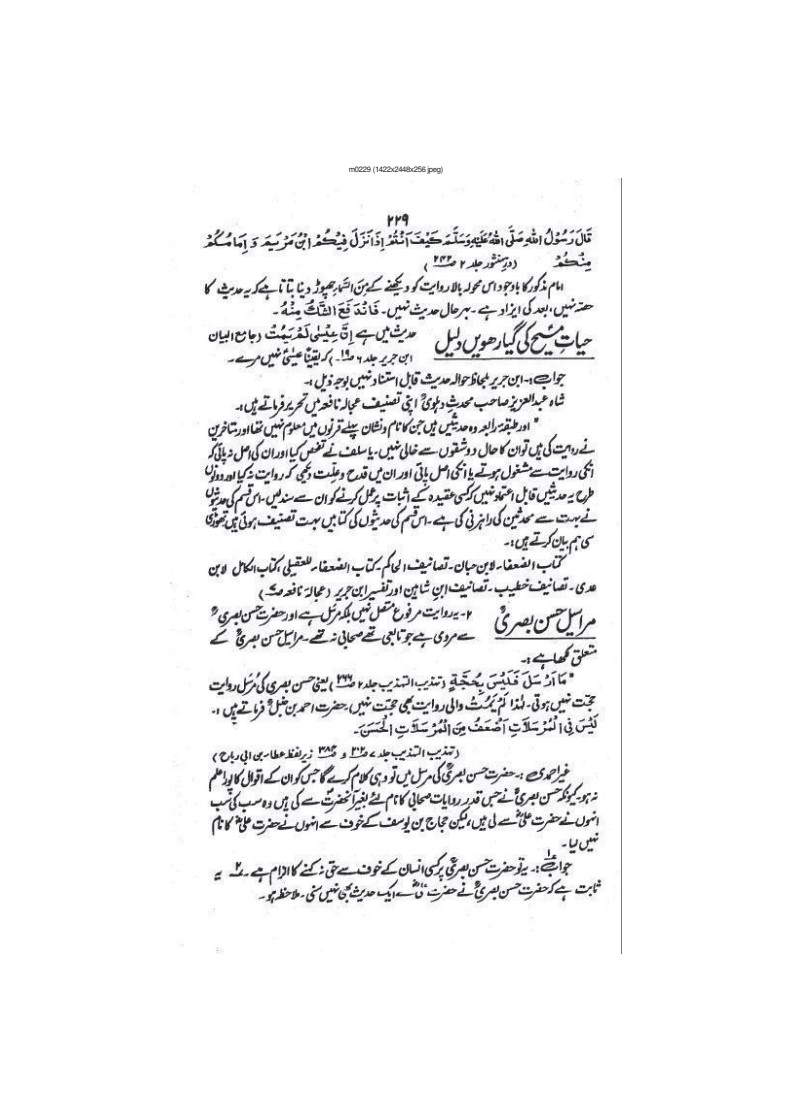 m0229 (1422x2448x256 jpeg)
۲۲۹
قَالَ رَسُوْلُ اللهِ صَلَّى اللهُ عَلَيْهِ وَسَلَّمَ كَيْفَ اَنْتُمْ اِذَا نَزَلَ فِيْكُمْ ابْنُ مَرْيَمَ وَ اِمَامُكُمْ
مِنْكُمْ (در منثور جلد ۲ صـ۲۴۲)
امام مذکور کا باوجود اس محولہ بالا روایت کو دیکھنے کے مِنَ السَّمَاءِ چھوڑ دینا بتاتا ہے کہ یہ حدیث کا
حصہ نہیں، بعد کی ایزاد ہے۔ بہرحال حدیث نہیں۔ فَانْدَفَعَ الشَّكُّ مِنْهُ۔
حیاتِ مسیح کی گیارھویں دلیل
حدیث میں ہے اِنَّ عِيْسٰى لَمْ يَمُتْ (جامع البیان
ابن جریر جلد ۶ صـ) کہ یقیناً عیسیٰؑ نہیں مرے۔
جواب:۔ ابن جریر بلحاظ حوالہ حدیث قابل استناد نہیں بوجہ ذیل:۔
شاہ عبدالعزیز صاحب محدث دہلویؒ اپنی تصنیف عجالہ نافعہ میں تحریر فرماتے ہیں:۔
"اور طبقہ رابعہ وہ حدیثیں ہیں جن کا نام و نشان پہلے قرنوں میں معلوم نہیں تھا اور متاخرین
نے روایت کی ہیں تو ان کا حال دو شقوں سے خالی نہیں۔ یا سلف نے تفحص کیا اور ان کی اصل نہ پائی کہ
انکی روایت سے مشغول ہوتے یا انکی اصل پائی اور ان میں قدح و علّت دیکھی کہ روایت نہ کیا اور دونوں
طرح یہ حدیثیں قابل اعتماد نہیں کہ کسی عقیدہ کے اثبات پر عمل کرنے کو ان سے سند لیں۔ اس قسم کی حدیثوں
نے بہت سے محدثین کی راہزنی کی ہے۔ اس قسم کی حدیثوں کی کتابیں بہت تصنیف ہوئی ہیں تھوڑی
سی ہم بیان کرتے ہیں:۔
کتاب الضعفاء لابن حبان۔ تصانیف الحاکم۔ کتاب الضعفاء للعقیلی، کتاب الکامل لابن
عدی۔ تصانیف خطیب۔ تصانیف ابن شاہین اور تفسیر ابن جریر (عجالہ نافعہ صـ)
مراسیل حسن بصریؒ
۲۔ یہ روایت مرفوع متصل نہیں بلکہ مرسل ہے اور حضرت حسن بصریؒ
سے مروی ہے جو تابعی تھے صحابی نہ تھے۔ مراسیل حسن بصریؒ کے
متعلق لکھا ہے:۔
"مَا اَرْسَلَ فَلَيْسَ بِحُجَّةٍ (تہذیب التہذیب جلد ۲ صـ۲۶۶) یعنی حسن بصری کی مُرسل روایت
حجت نہیں ہوتی۔ لہٰذا لَمْ يَمُتْ والی روایت بھی حجت نہیں۔ حضرت احمد بن حنبلؒ فرماتے ہیں:۔
لَيْسَ فِى الْمُرْسَلَاتِ اَضْعَفُ مِنَ الْمُرْسَلَاتِ الْحَسَنِ۔
(تہذیب التہذیب جلد ۷ صـ و صـ زیر لفظ عطاء بن ابی رباح)
غیر احمدی:۔ حضرت حسن بصریؒ کی مرسل میں تو وہی کلام کرے گا جس کو ان کے اقوال کا پورا علم
نہ ہو۔ کیونکہ حسن بصریؒ نے جس قدر روایات صحابی کا نام لئے بغیر آنحضرتؐ سے کی ہیں وہ سب کی سب
انہوں نے حضرت علیؓ سے لی ہیں، لیکن حجاج بن یوسف کے خوف سے انہوں نے حضرت علیؓ کا نام
نہیں لیا۔
جواب ۱:۔ یہ تو حضرت حسن بصریؒ پر کسی انسان کے خوف سے حق نہ کہنے کا الزام ہے۔ ۲ یہ
ثابت ہے کہ حضرت حسن بصریؒ نے حضرت علیؓ سے ایک حدیث بھی نہیں سنی۔ ملاحظہ ہو۔